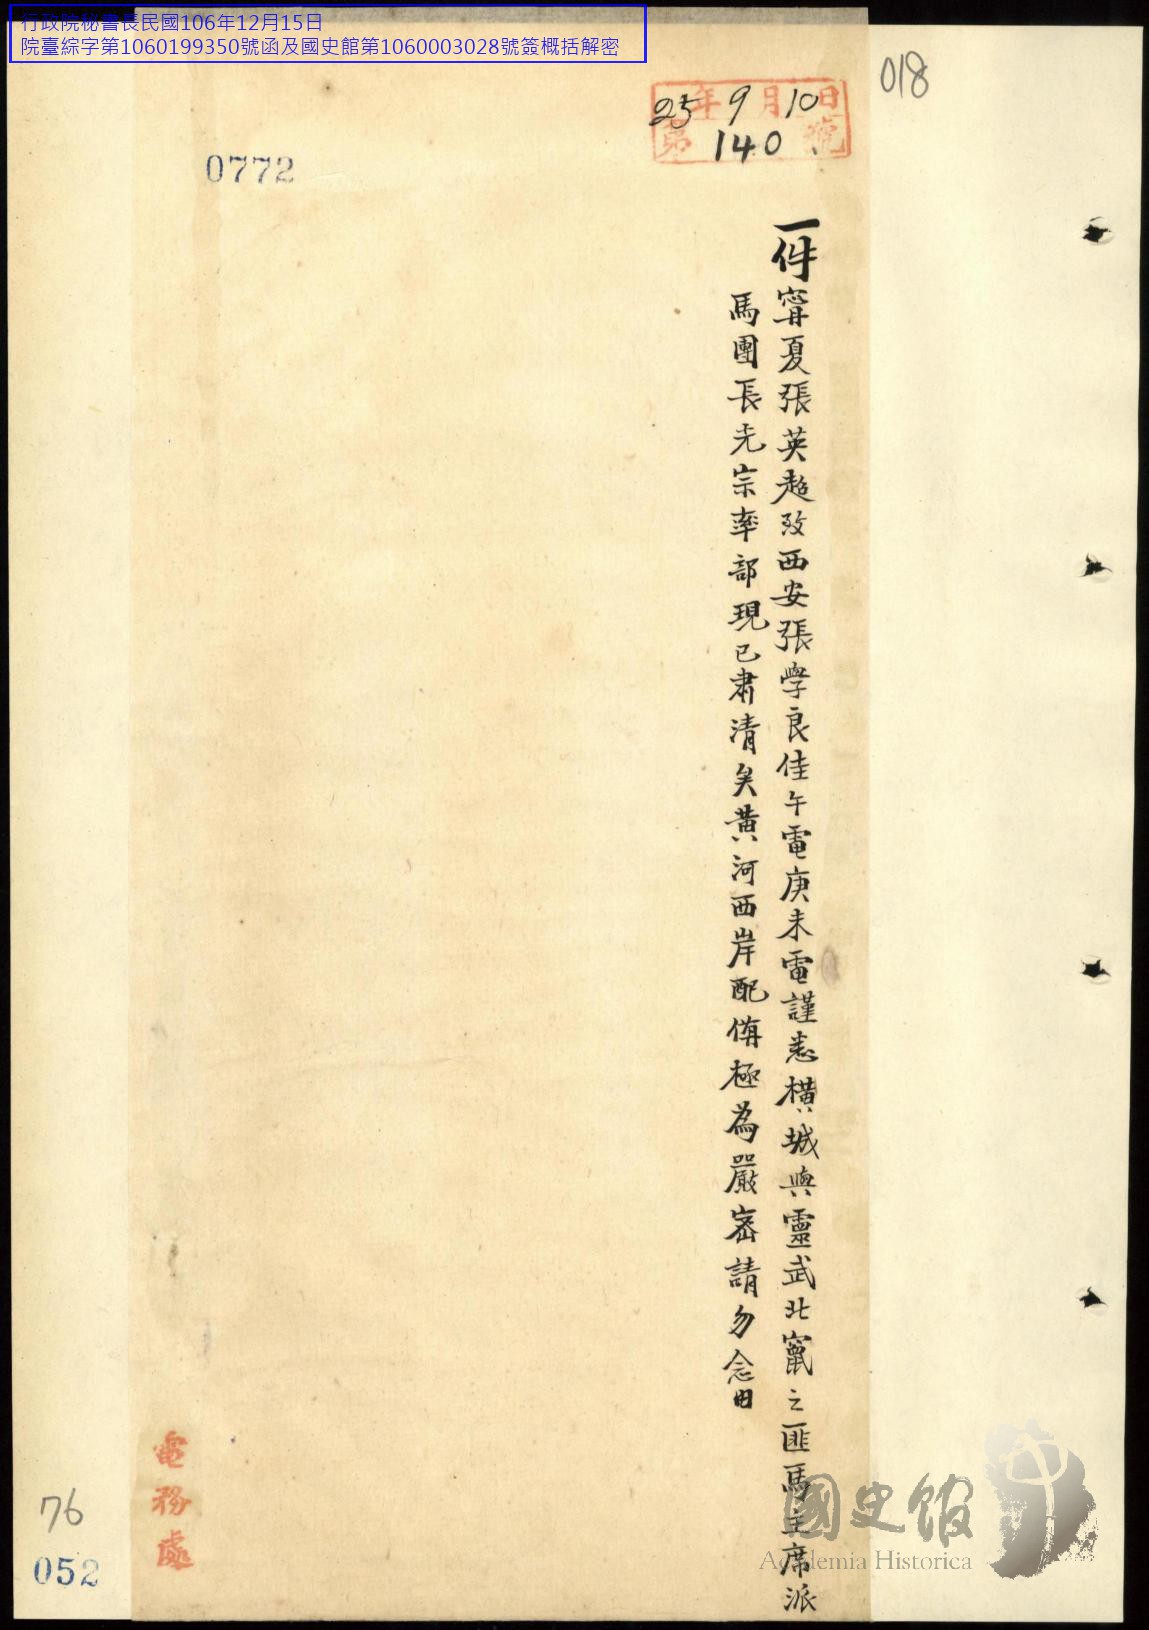 行政院秘書長民國106年12月15日
院臺綜字第1060199350號函及國史館第1060003028號簽概括解密
018
25年9月10日
第140號
0772
一件寗夏張英超致西安張學良佳午電庚未電謹悉橫城與靈武北竄之匪馬主席派
馬團長光宗率部現已肅清矣黃河西岸配備極為嚴密請勿念田
電務處
76
052
國史館
Academia Historica